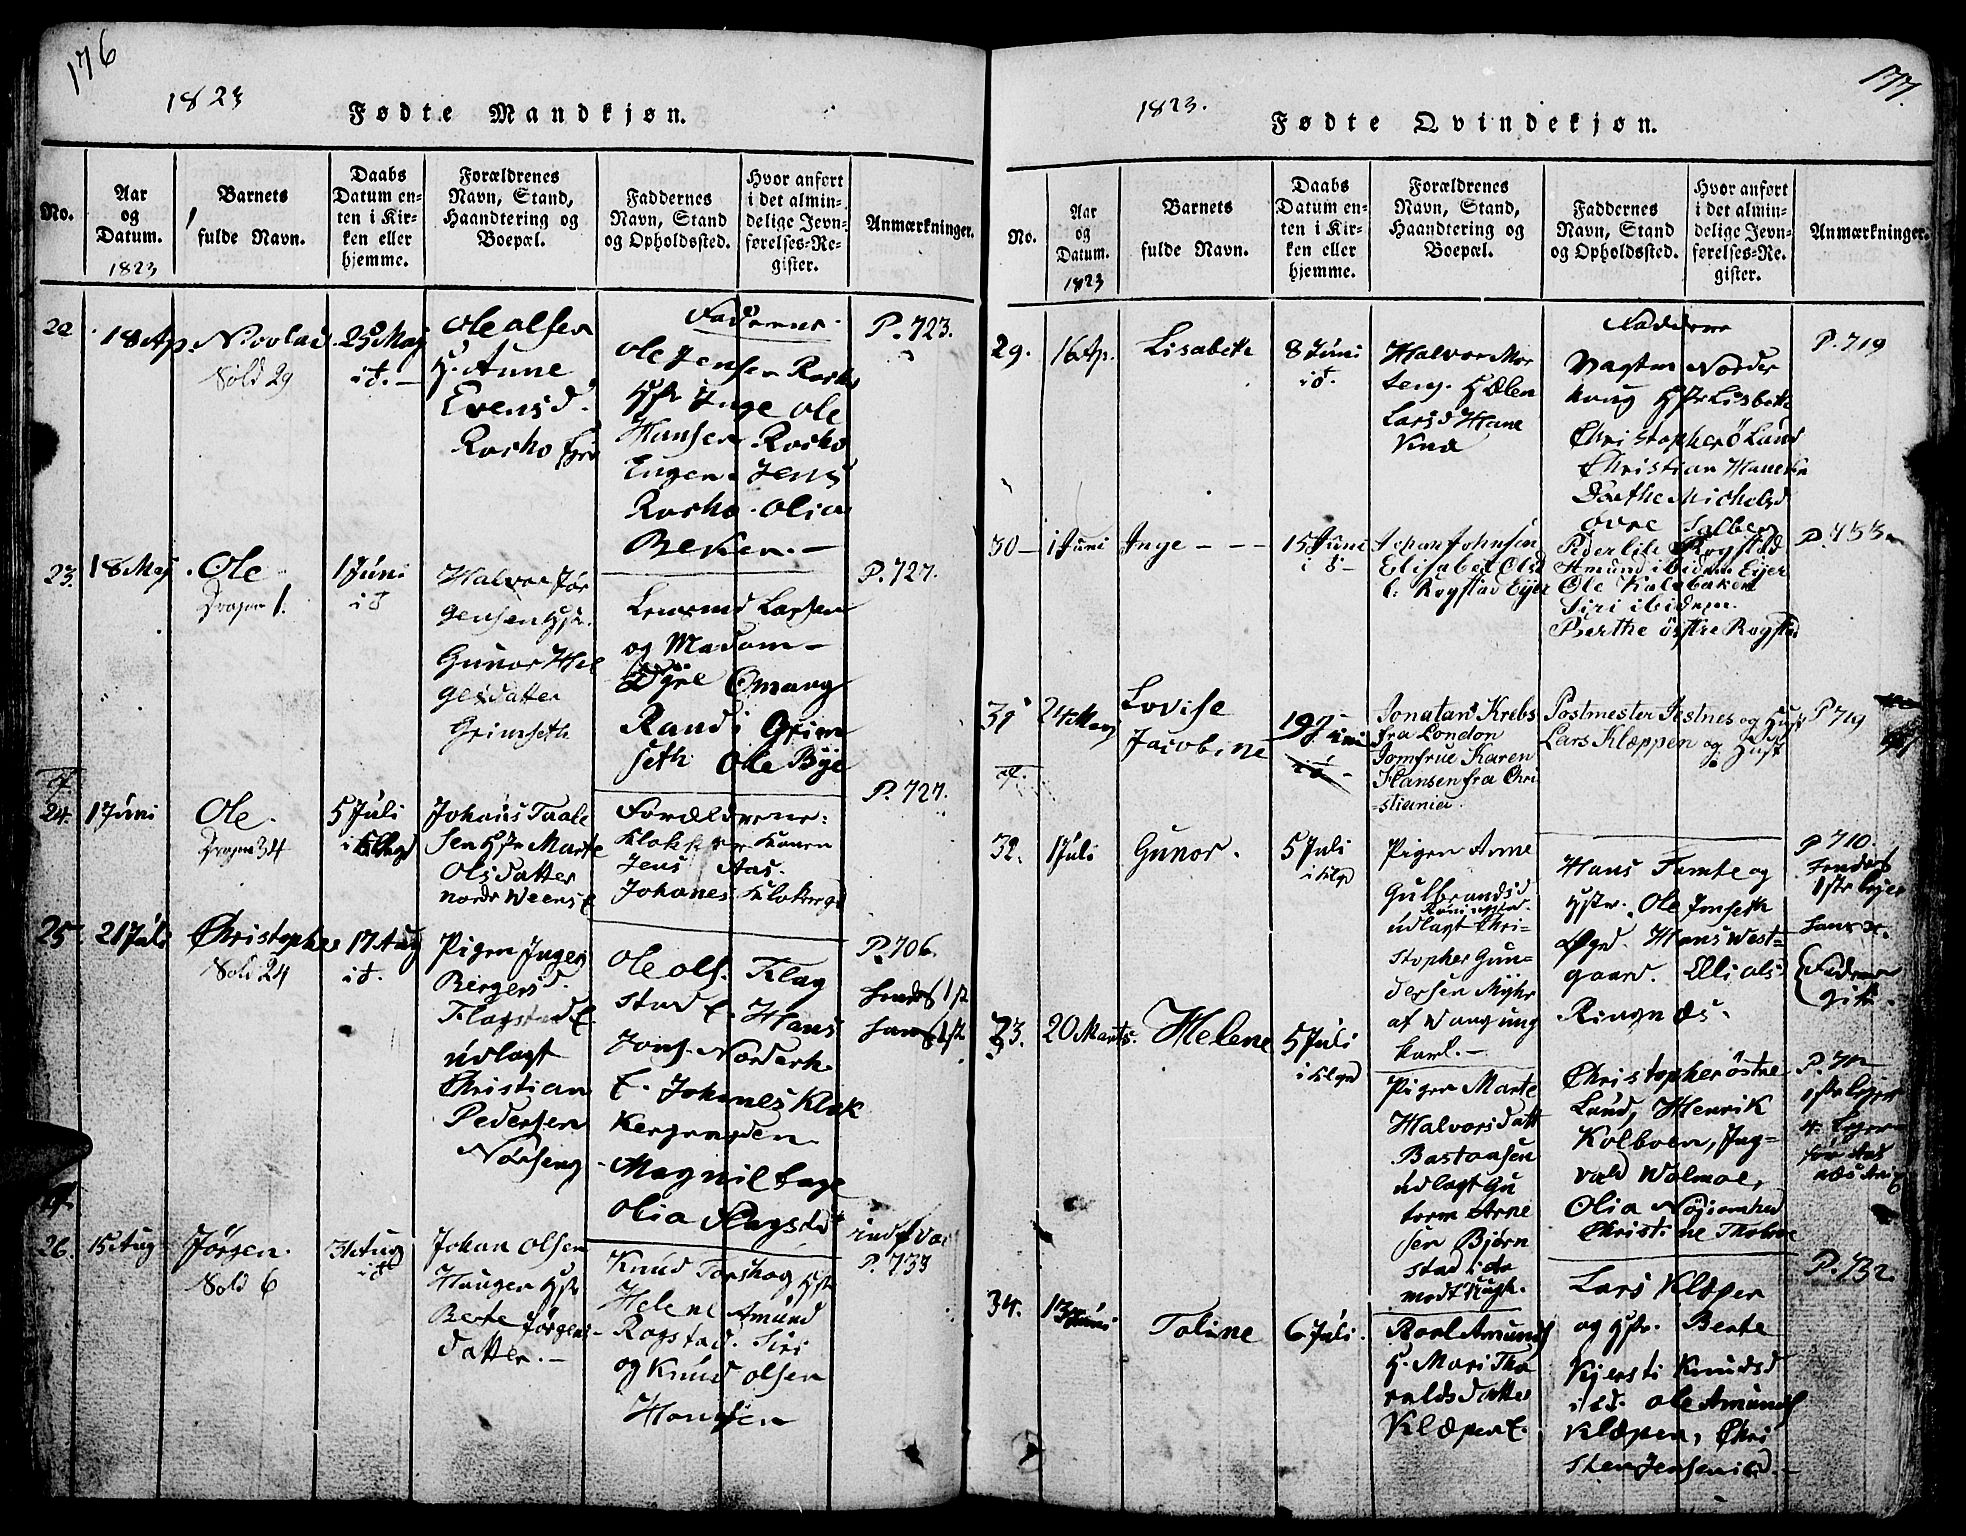 176
1823
Fødte Mandkjøn.
No.
Aar
og
Datum.
1823
Barnets
fulde Navn.
Daabs
Datum en-
ten i Kir-
ken eller
hjemme.
Forældrenes
Navn, Stand,
Haandtering og
Boepæl.
Faddernes
Navn, Stand
og Opholdssted.
Hvor anført
i det almin-
delige Jevn-
førelses-Re-
gister.
Anmærkninger.
22
18 Ap.
Nicolai
Sold 29
25 Maj
Ole Olsen
H. Anne
Evensd.
Rosho
Fadderne
Ole Jensen Rosho
Hstr Inge Ole
Hansen Rosho
Jens
Rosho Olia
Beken.
P. 723.
23.
18 Maj
Ole
Dragon 1.
1 Juni
Halvor Jør
gensen Hstr.
Gunor Hel
gesdatter
Grimseth
Larsen
og Madam
Dyre Omang
Randi Grim
seth Ole Bye
P. 727.
24.
1 Juni
Ole.
Dragon 34
5 Juli
Johans Taale
sen Hstr Marte
Olsdatter
nordr
Forældrene:
Klokker Konen
Jens Aas.
Johanes
P. 727.
25
21 Juli
Christopher
Sold 24
17 Aug
Pigen Inger
Bergersd.
Flagstad E
udlagt
Christian
Pedersen
Norseng
Ole Ols. Flag
stad E. Hans
Jons. Norderh.
E. Johanes Klok
kergarden
Magnil
Olia Flagstad
P. 706.
26.
15 Aug
Jørgen.
Sold 6
31 Aug
Johan Olsen
Haugen Hstr
Berte Jørgens
datter.
Knud Torshog Hstr
Helene Amund
Rogstad. Siri
og Knud Olsen
Haugen
P. 733
177.
1823.
Fødte Qvindekjøn.
No.
Aar
og
Datum.
1823
Barnets
fulde Navn.
Daabs
Datum en-
ten i Kir-
ken eller
hjemme.
Forældrenes
Navn, Stand,
Haandtering og
Boepæl.
Faddernes
Navn, Stand
og Opholdssted.
Hvor anført
i det almin-
delige Jevn-
førelses-Re-
gister.
Anmærkninger.
29.
16 Ap.
Lisabeth
8 Juni
Halvor Mor
tens. H Elen
Larsd Hane
Kna
Fadderne
Norder
haug Hstr Lisbeth
Christopher Ø Lund
Christian
Dorthe Michelsd
øvre Solberg
P. 719
30
1 Juni
Inge
15 Juni
Johan Johnsen
Elisabet Olsd
l. Rogstad Ejer
Peder lile Rogstad
Amund ibidem Ejer
Ole Kalabakken
Siri ibidem.
Berthe østre Rogstad
P. 733
31
24 Marz
Lovise
Jacobine
19 Juni
Jonatan Krebs
fra London
Jomfrue Karen
Hansen fra Chri
-stiania.
Postmester Jestnes og Hust
Lars Klæppen og Hust
P 719
32.
1 Juli
Gunor.
5 Juli
Pigen Anne
Gulbrandsd
udlagt Chri-
stopher Gun-
dersen Myhr
af Wang ung
karl.
Hans Tomte og
Hstr. Ole Imseth
Hans West-
gaard. Elli Ols.
Ringnæs.
P 710.
33.
20 Marts.
Helene
5 Juli
Pigen Marte
Halvorsdatt
Bastaasen
udlagt Gu
torm Arne
sen Bjørn
stad
Christopher østre
Lund, Henrik
Kolboen, Ing-
vald Wolmoe,
Olia Nøisomhed
Christine
34.
13 Juni
Toline
6 Juli.
Roel Amunds
H. Mari Tho
rvaldsdatter
Klæpen E.
Lars Klæpen
og Hstr. Berte
Kjersti Knudsd
Ole Amunds
Klæpen, Chri
sten Jensen ibd.
P. 732.